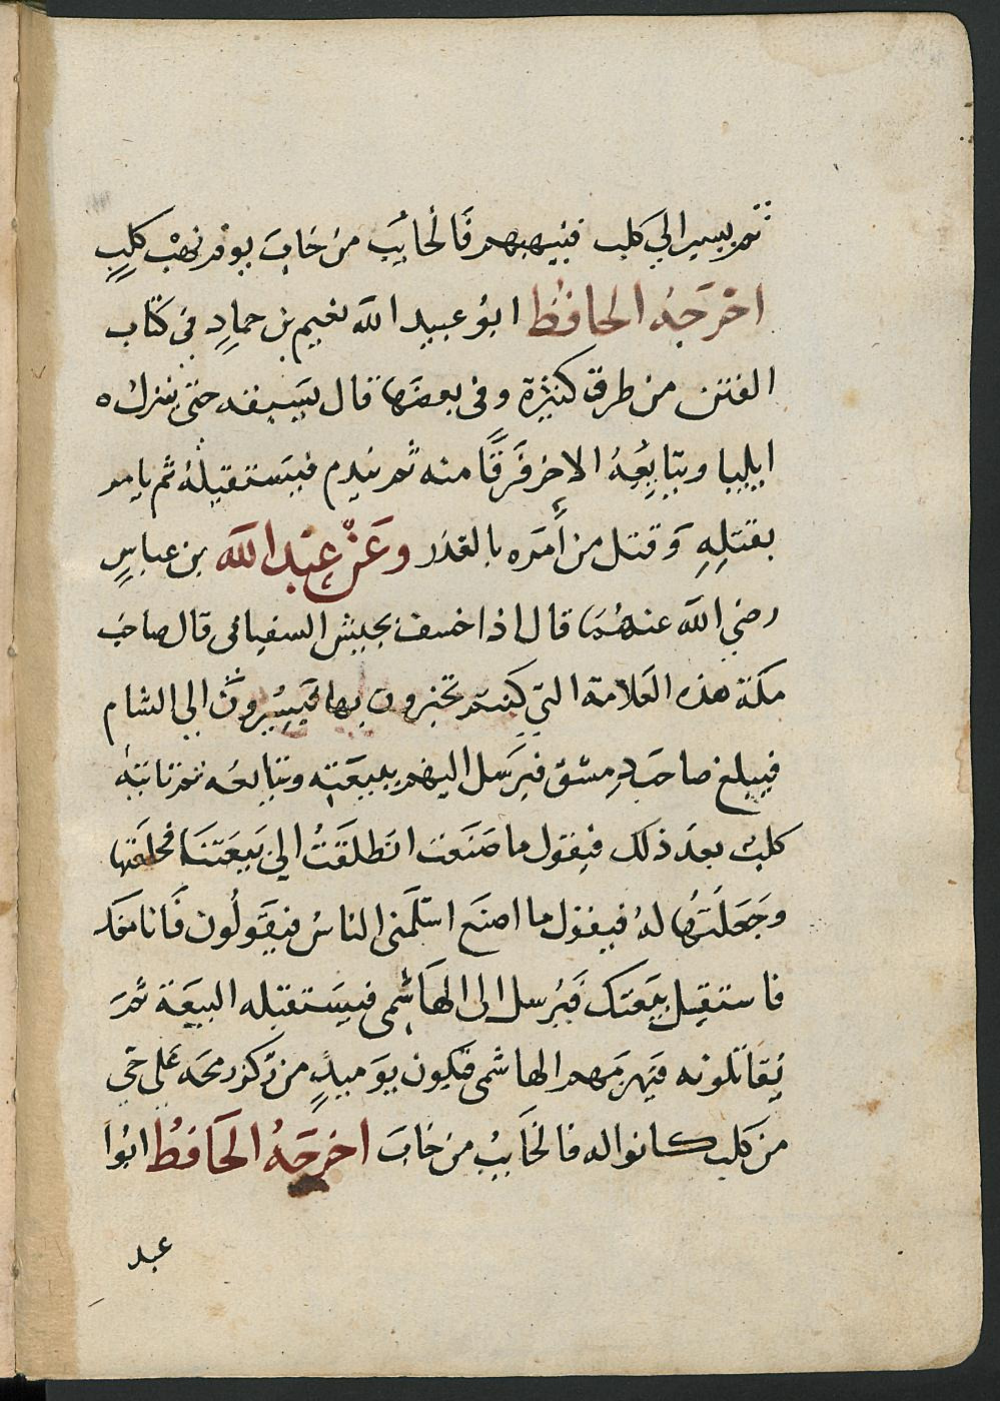 ثم يسير الى كلب فينهبهم فالخايب من خاب يوم نهب كلب
اخرجه الحافظ ابو عبيد الله نعيم بن حماد في كتاب
الفتن من طرق كثيرة وفي بعضها قال يسبقه حتى ينزل
ايليا ويتابعه الاخر فرقا منه ثم يندم فيستقيله ثم يامر
بقتله وقتل من امره بالغدر وعن عبد الله بن عباس
رضي الله عنهما قال اذا خسف بجيش السفياني قال صاحب
مكة هذه العلامة التي كنتم تخبرون بها فيسيرون الى الشام
فيبلغ صاحب دمشق فيرسل اليهم ببيعته ويتابعه ثم تاتيه
كلب بعد ذلك فيقول ما صنعت انطلقت الى بيعتنا فخلعتها
وجعلتها له فيقول ما اصنع اسلمني الناس فيقولون فانا معك
فاستقيل بيعتك فيرسل الى الهاشمي فيستقيله البيعة ثم
يقاتلونه فيهزمهم الهاشمي فيكون يوميذ من ركز رمحه على حي
من كلب كانوا له فالخايب من خاب اخرجه الحافظ ابوا
عبد